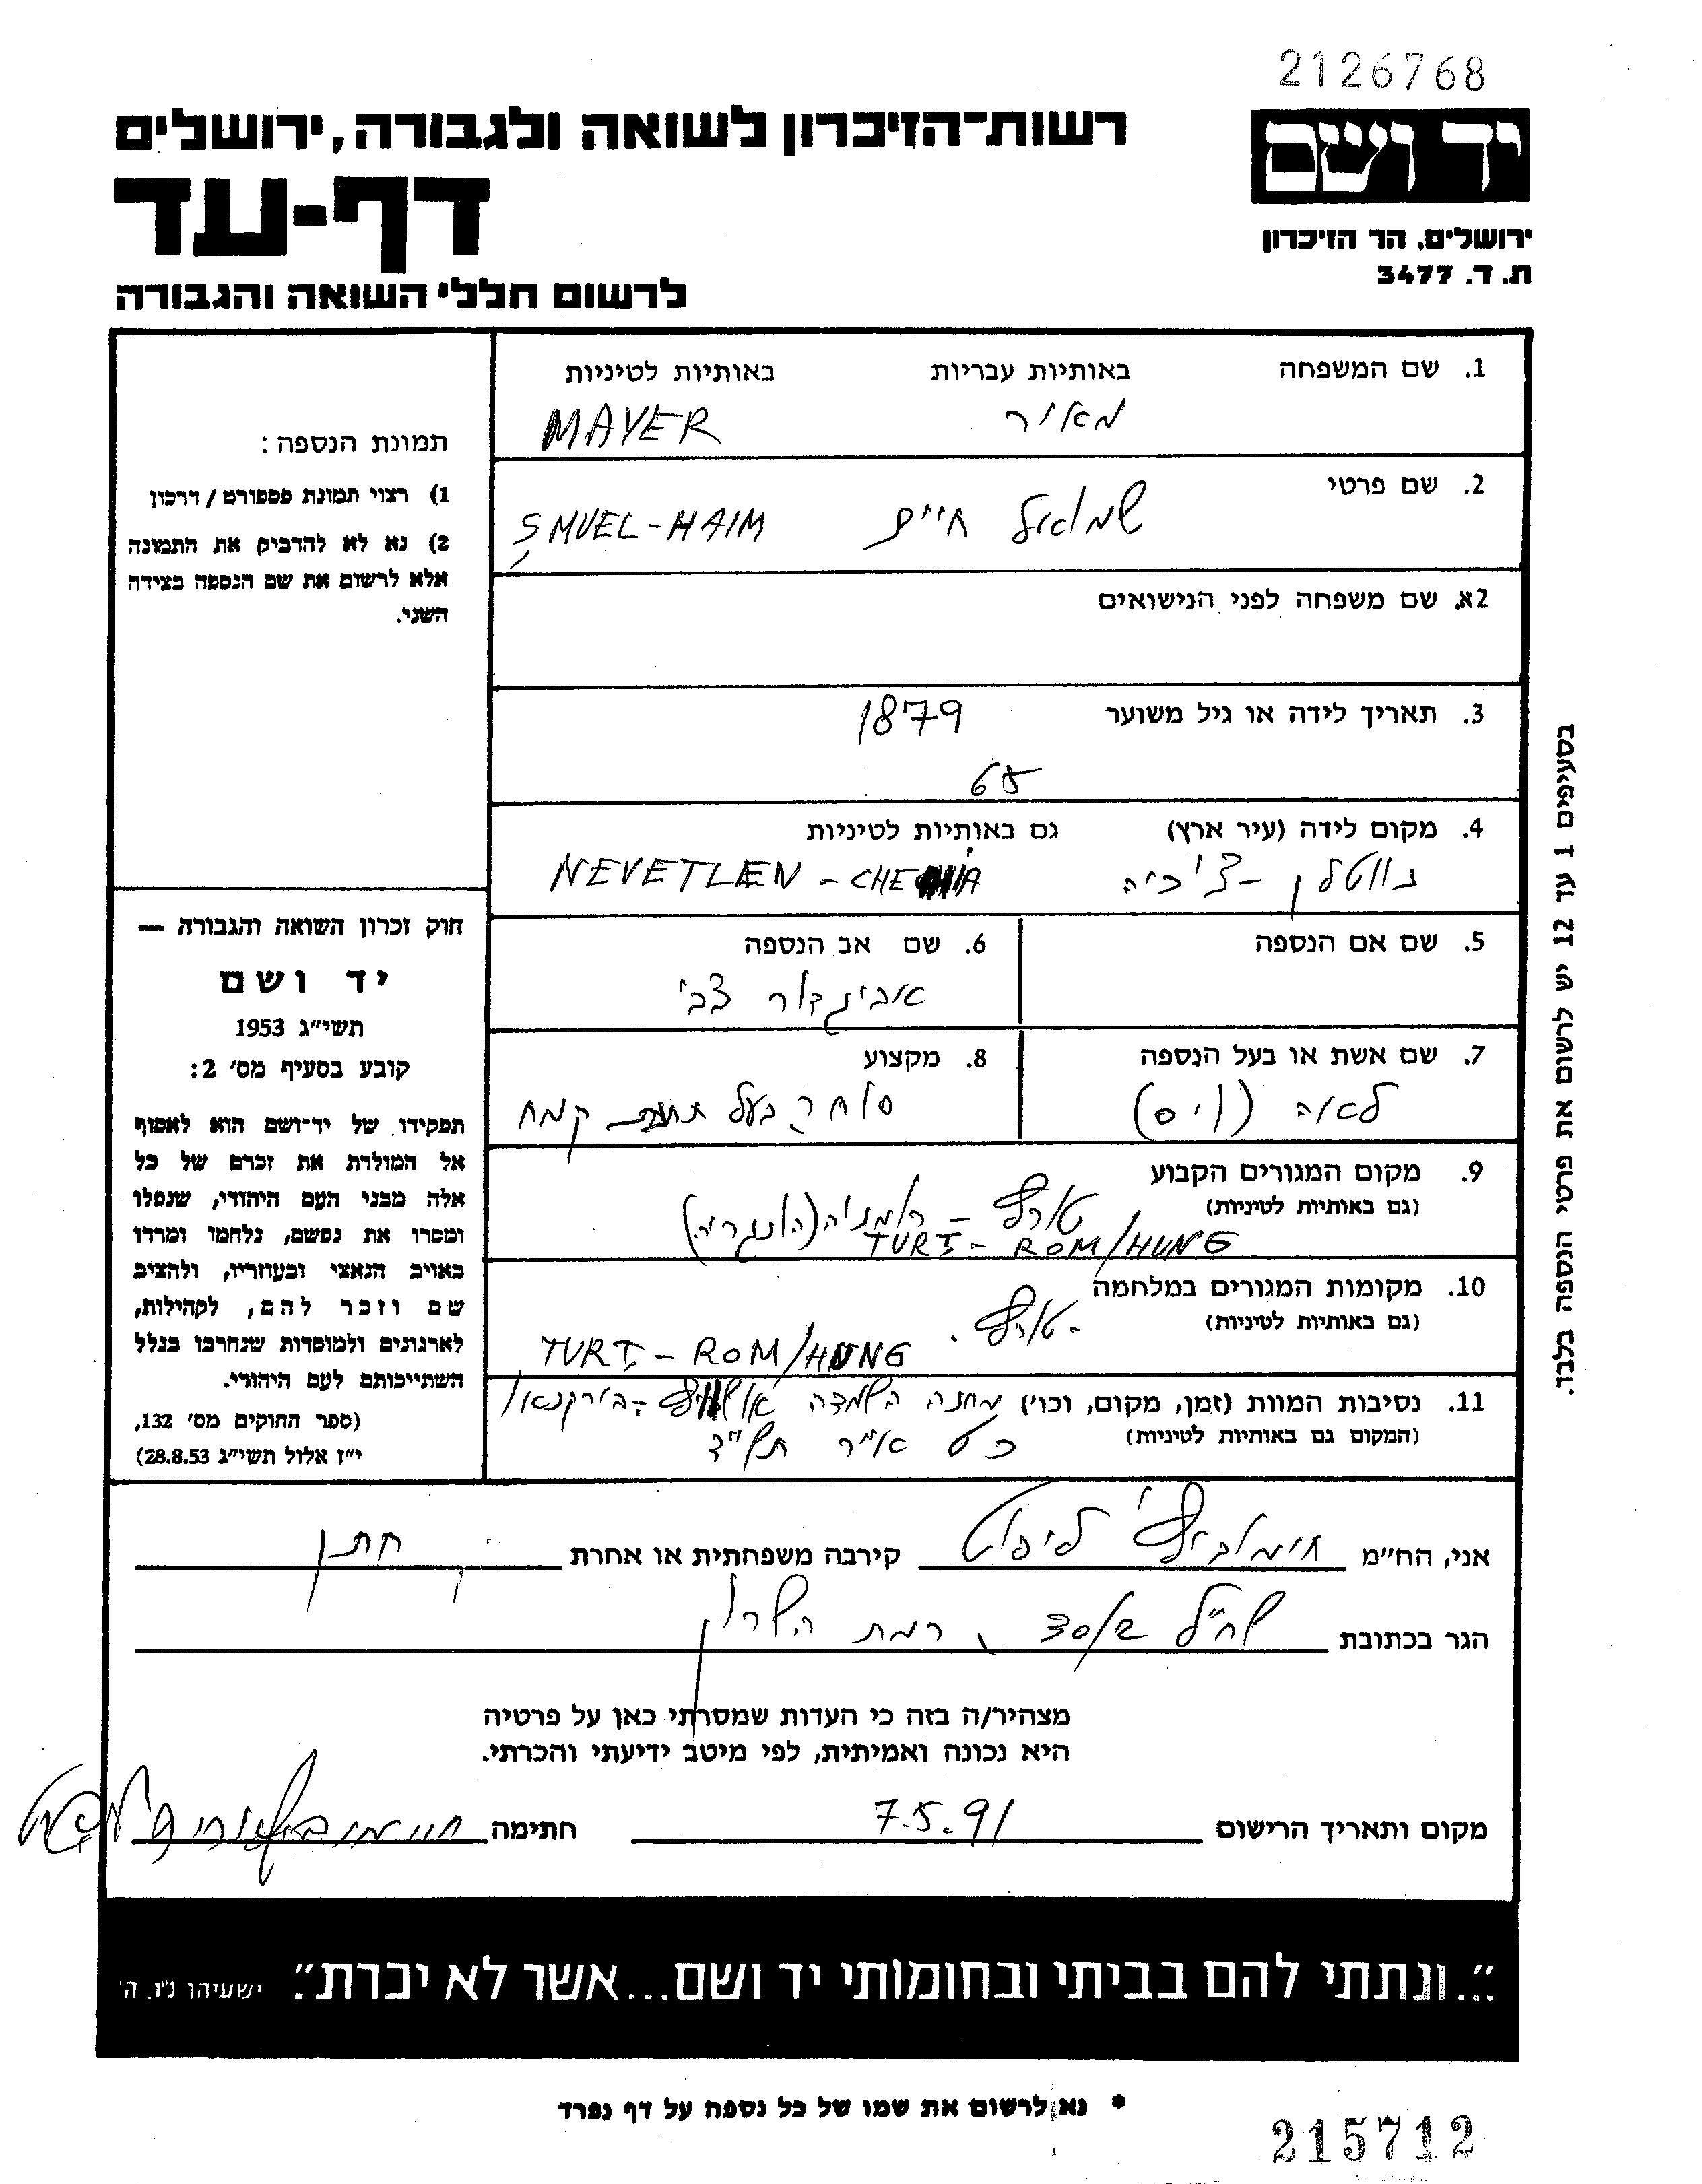 2126768
רשות-הזיכרון לשואה ולגבורה, ירושלים
יד ושם
דף-עד
ירושלים, הר הזיכרון
ת. ד. 3477
לרשום חללי השואה והגבורה
1. שם המשפחה באותיות עבריות באותיות לטיניות
מאיר MAYER
2. שם פרטי
שמואל חיים ŞMUEL-HAIM
2א. שם משפחה לפני הנישואים
3. תאריך לידה או גיל משוער 1879
65
4. מקום לידה (עיר ארץ) גם באותיות לטיניות
נווטלן - צ'כיה NEVETLÆN -
5. שם אם הנספה
6. שם אב הנספה
אביגדור צבי
7. שם אשת או בעל הנספה
לאה (ויס)
8. מקצוע
סוחר בעל תחנת קמח
9. מקום המגורים הקבוע
(גם באותיות לטיניות)
טורץ - רומניה (הונגריה)
TURŢ - ROM/HUNG
10. מקומות המגורים במלחמה
(גם באותיות לטיניות)
טורץ.
TURŢ - ROM/HUNG
11. נסיבות המוות (זמן, מקום, וכו') מחנה השמדה אושוויץ - בירקנאו
(המקום גם באותיות לטיניות) כט אייר תש"ד
תמונת הנספה:
1) רצוי תמונת פספורט / דרכון
2) נא לא להדביק את התמונה
אלא לרשום את שם הנספה בצידה
השני.
חוק זכרון השואה והגבורה —
יד ושם
תשי"ג 1953
קובע בסעיף מס' 2:
תפקידו של יד-ושם הוא לאסוף
אל המולדת את זכרם של כל
אלה מבני העם היהודי, שנפלו
ומסרו את נפשם, נלחמו ומרדו
באויב הנאצי ובעוזריו, ולהציב
שם וזכר להם, לקהילות,
לארגונים ולמוסדות שנחרבו בגלל
השתייכותם לעם היהודי.
(ספר החוקים מס' 132,
י"ז אלול תשי"ג 28.8.53)
בסעיפים 1 עד 12 יש לרשום את פרטי הנספה בלבד.
אני, הח"מ חיימוביץ' ליפוט קירבה משפחתית או אחרת חתן
הגר בכתובת רמת השרון
מצהיר/ה בזה כי העדות שמסרתי כאן על פרטיה
היא נכונה ואמיתית, לפי מיטב ידיעתי והכרתי.
מקום ותאריך הרישום 7.5.91 חתימה
"...ונתתי להם בביתי ובחומותי יד ושם...אשר לא יכרת". ישעיהו נ"ו, ה'
* נא לרשום את שמו של כל נספה על דף נפרד
215712